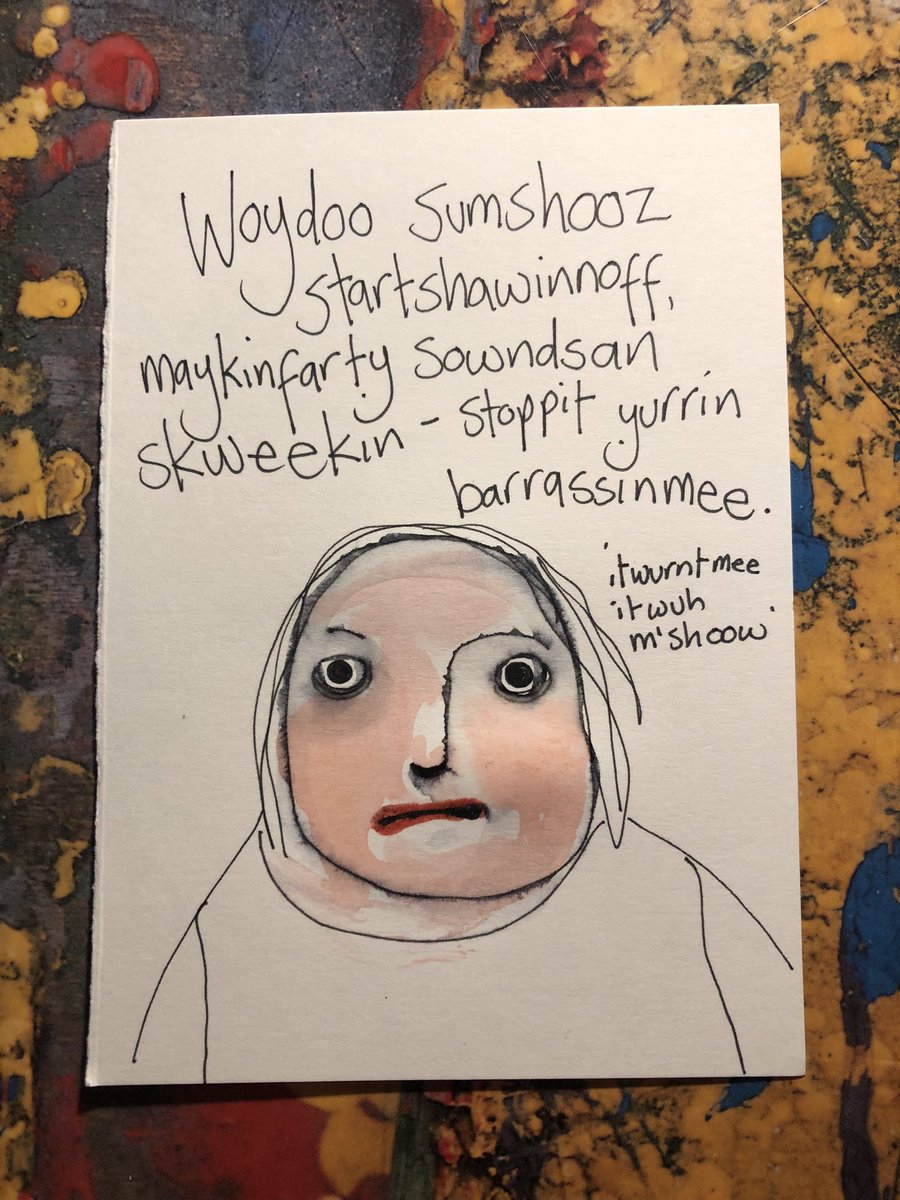 Woydoo sumshooz
startshawinnoff,
maykinfarty sowndsan
skweekin - stoppit yurrin
barrassinmee.
itwurntmee
itwuh
m'shoow